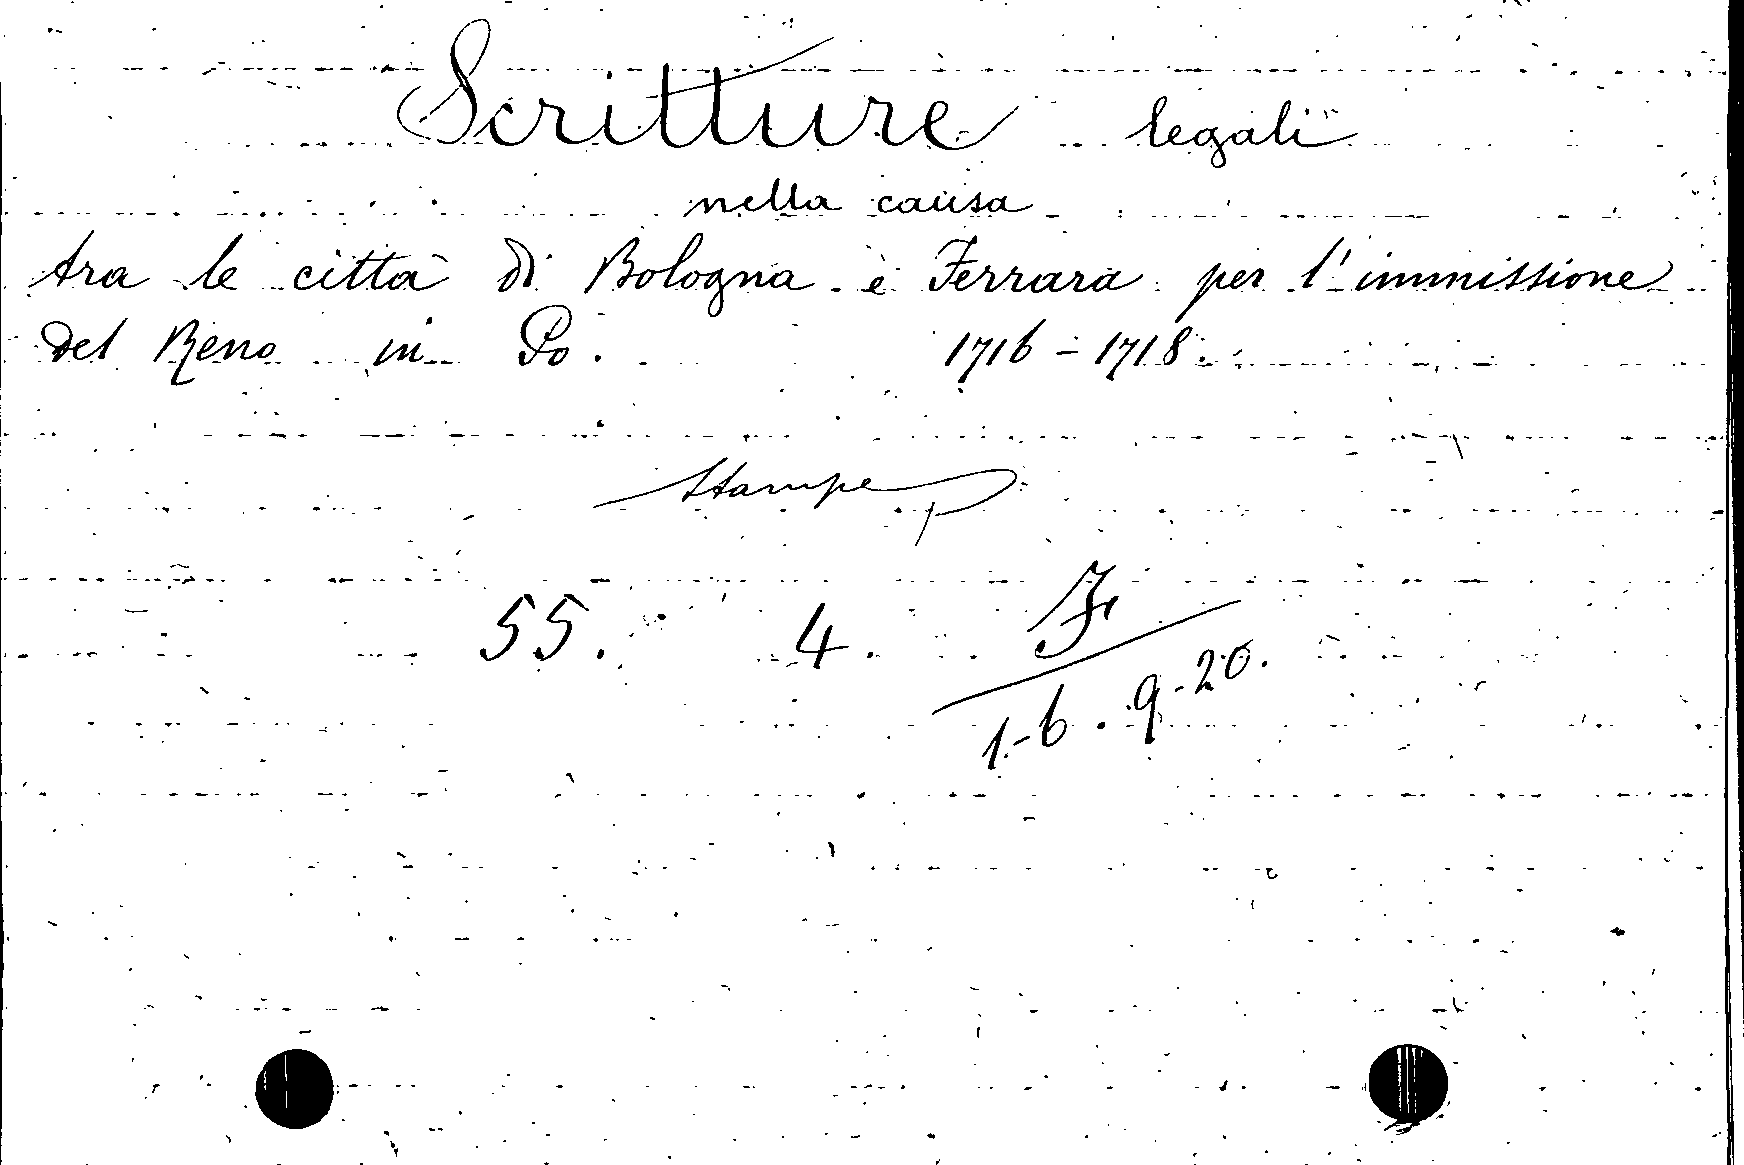 Scritture legali
nella causa
tra le città di Bologna è Ferrara per l'immissione
del Reno in Po. 1716-1718.
Stampe
55. 4. F
1-6.9-20.